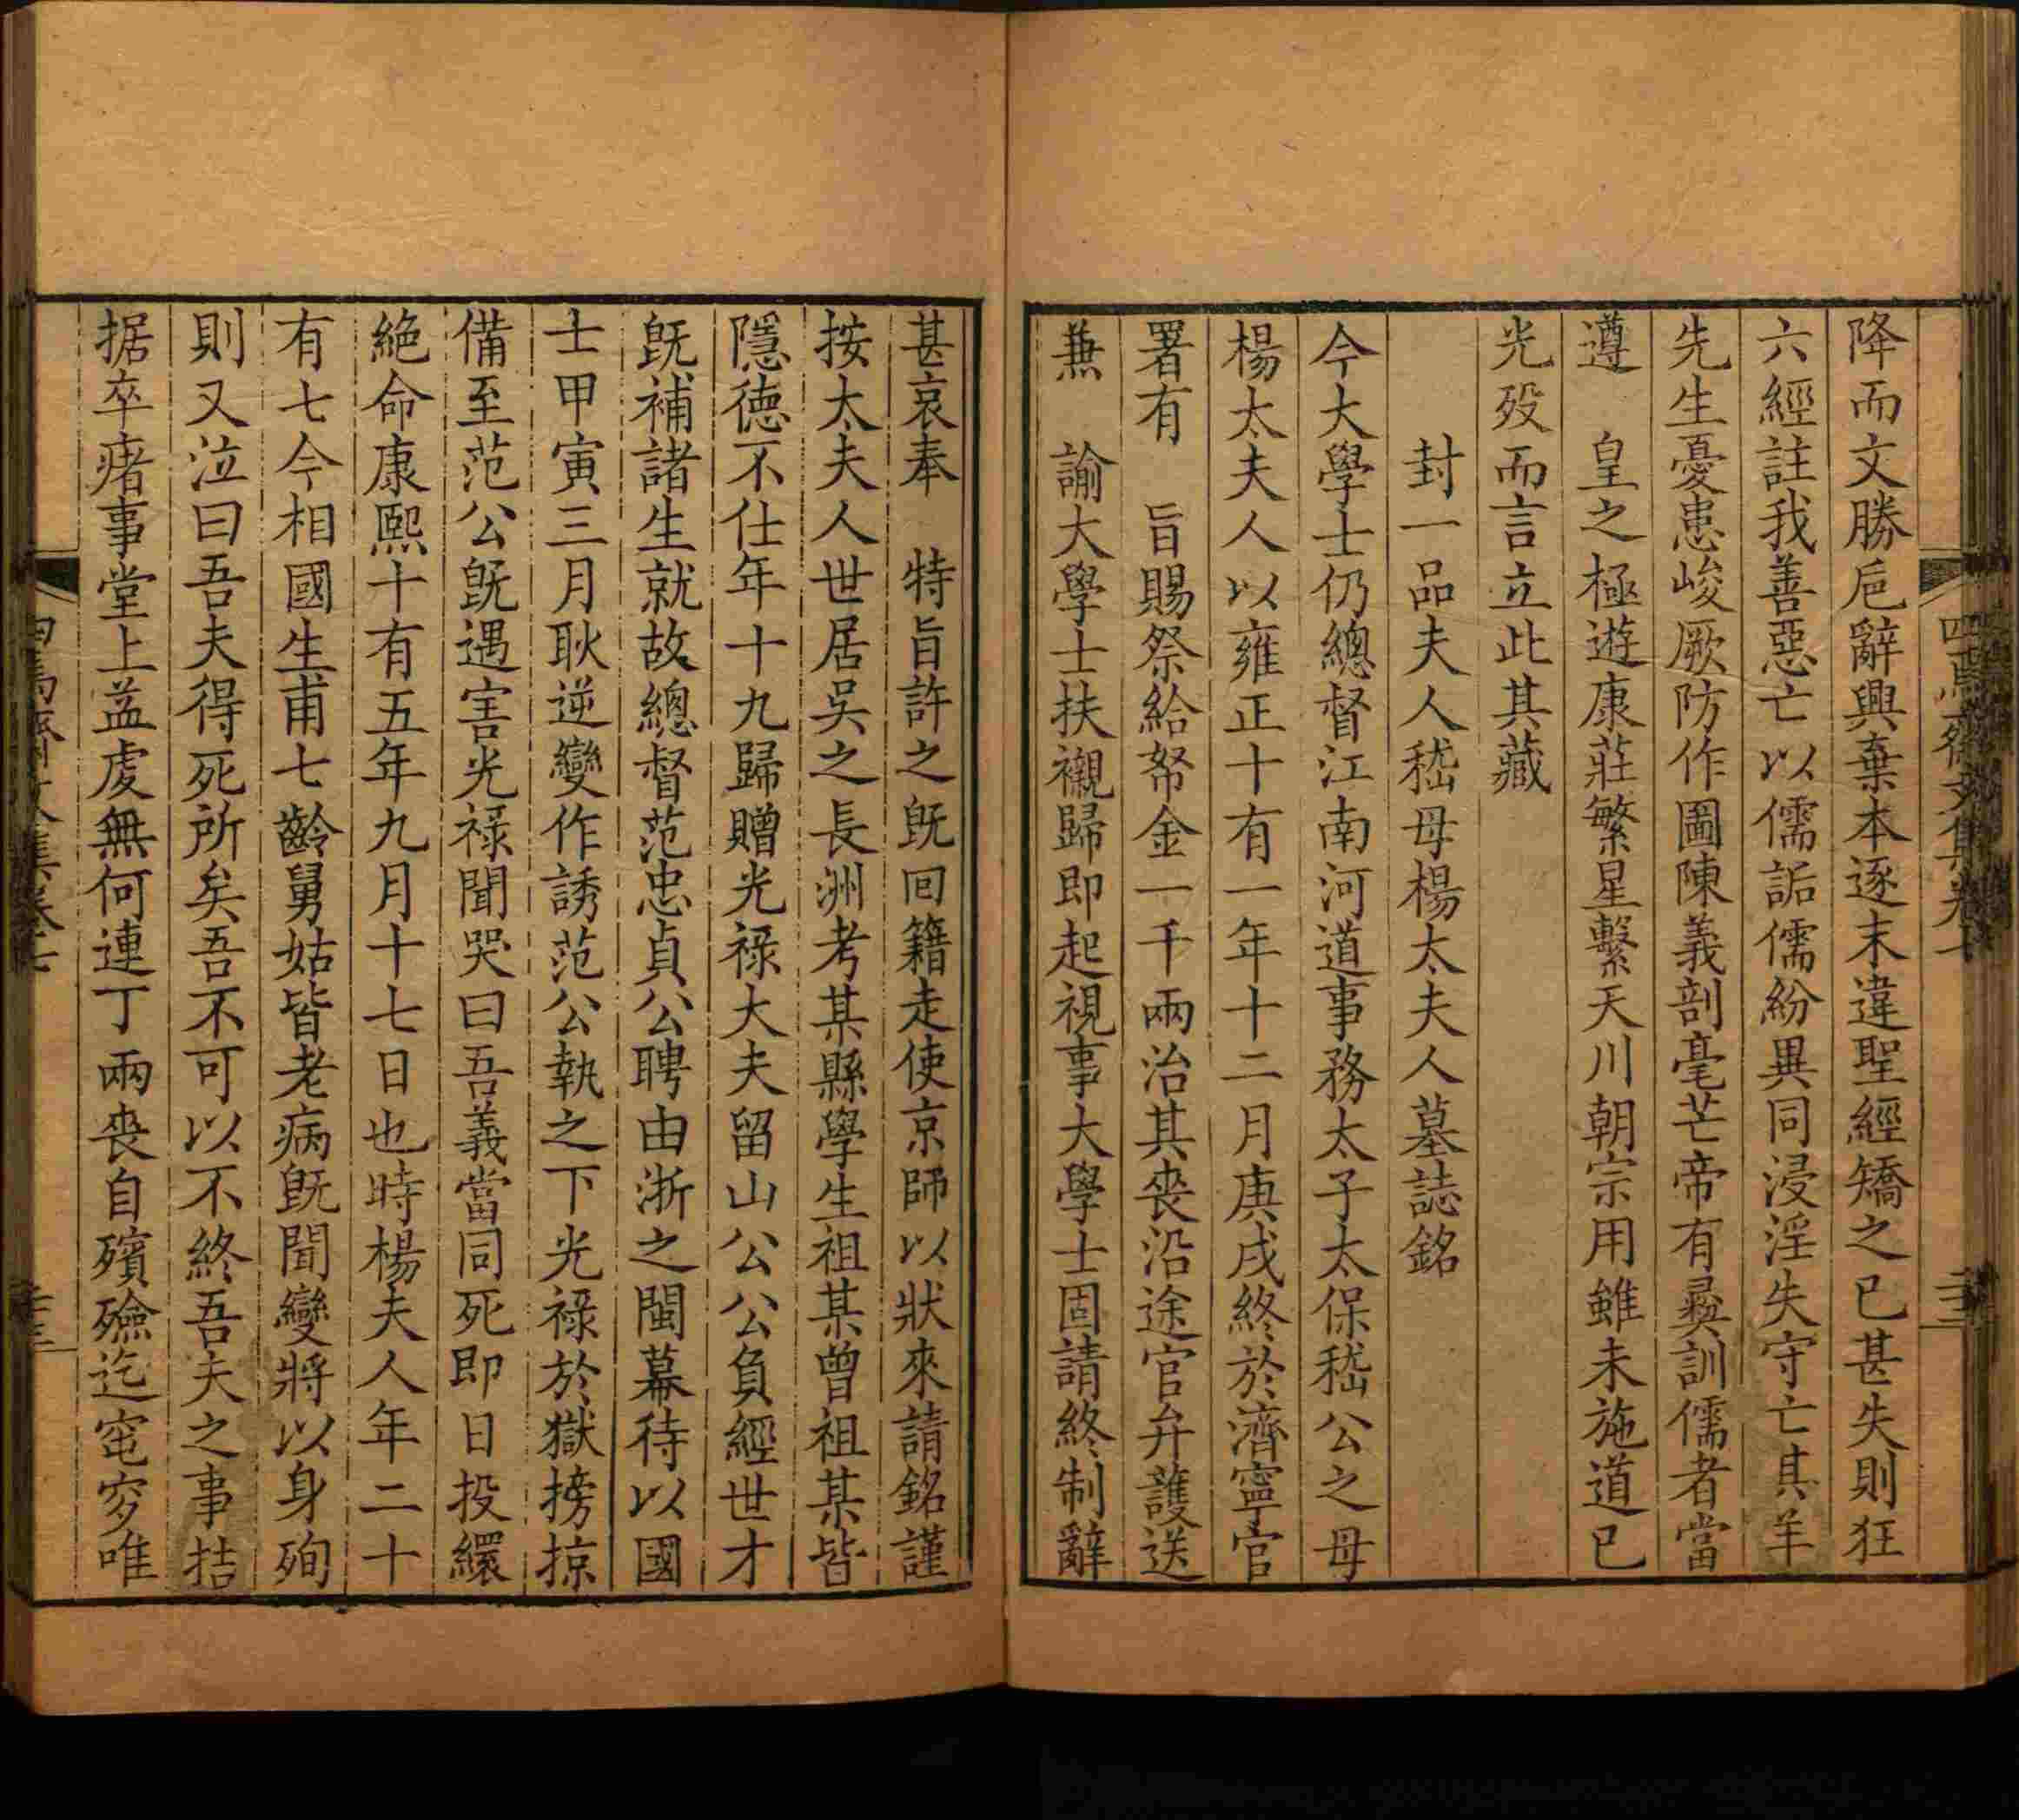 降而文勝巵辭興棄本逐末違聖經矯之已甚失則狂
六經註我善惡亡以儒詬儒紛異同浸淫失守亡其羊
先生憂患峻厥防作圖陳義剖毫芒帝有彝訓儒者當
遵　皇之極遊康莊繁星繫天川朝宗用雖未施道已
光歿而言立此其藏
封一品夫人嵇母楊太夫人墓誌銘
今大學士仍總督江南河道事務太子太保嵇公之母
楊太夫人以雍正十有一年十二月庚戌終於濟寧官
署有　旨賜祭給帑金一千兩治其喪沿途官弁護送
兼　諭大學士扶櫬歸即起視事大學士固請終制辭
甚哀奉　特旨許之既囘籍走使京師以狀來請銘謹
按太夫人世居吳之長洲考某縣學生祖某曾祖某皆
隱德不仕年十九歸贈光祿大夫留山公公負經世才
旣補諸生就故總督范忠貞公聘由浙之閩幕待以國
士甲寅三月耿逆變作誘范公執之下光祿於獄搒掠
備至范公旣遇害光祿聞哭曰吾義當同死即日投繯
絶命康熙十有五年九月十七日也時楊夫人年二十
有七今相國生甫七齡舅姑皆老病旣聞變將以身殉
則又泣曰吾夫得死所矣吾不可以不終吾夫之事拮
据卒瘏事堂上益虔無何連丁兩喪自殯殮迄窀穸唯
四焉齋文集卷七